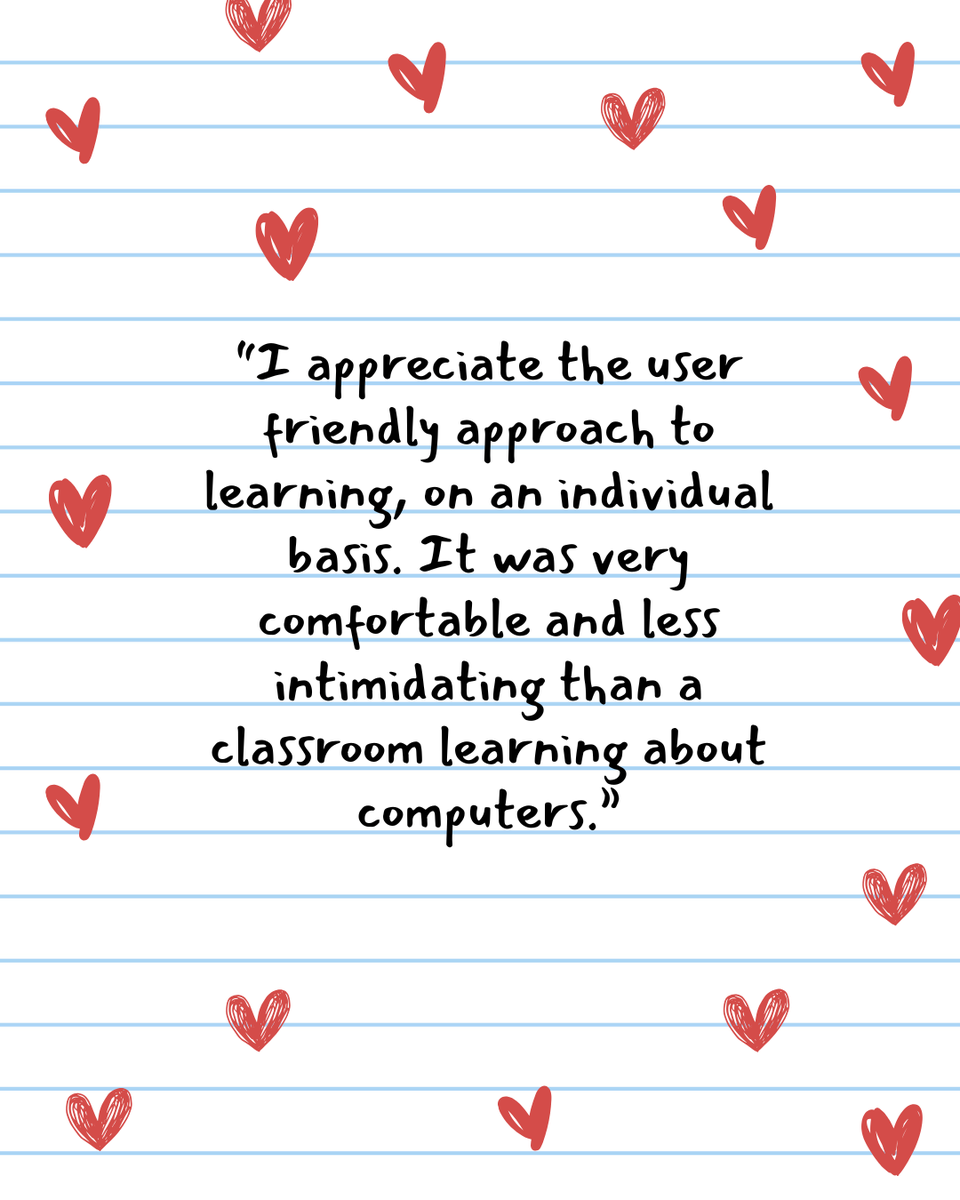 "I appreciate the user
friendly approach to
learning, on an individual
basis. It was very
comfortable and less
intimidating than a
classroom learning about
computers."